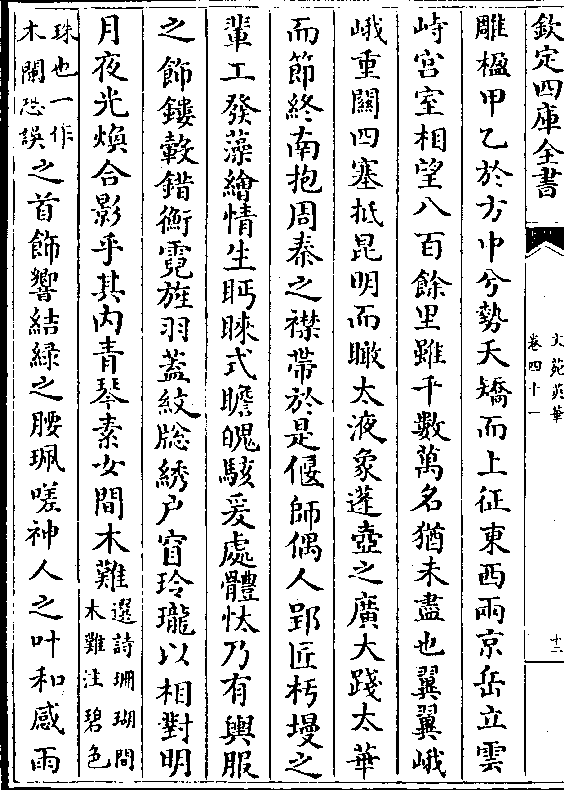 欽定四庫全書
文苑英華
卷四十一
十二
雕楹甲乙於方中兮勢夭矯而上征東西兩京岳立雲
峙宫室相望八百餘里雖千數萬名猶未盡也翼翼峨
峨重闗四塞抵昆明而瞰太液象蓬壺之廣大踐太華
而節終南抱周秦之襟帶於是偃師偶人郢匠杇墁之
輩工發藻繪情生眄睞式瞻魄駭爰處體忲乃有輿服
之飾鏤轂錯衡霓旌羽蓋紋牎綉户窅玲瓏以相對明
月夜光煥合影乎其内青琴素女間木難選詩珊瑚間木難注碧色
珠也一作木闌恐誤之首飾響結緑之腰珮嗟神人之叶和感雨